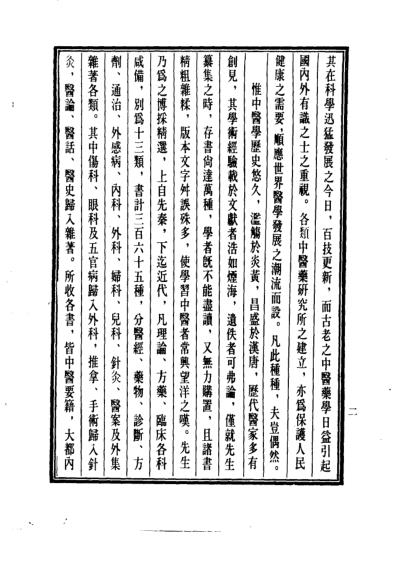 其在科學迅猛發展之今日，百技更新，而古老之中醫藥學日益引起
國內外有識之士之重視。各類中醫藥研究所之建立，亦爲保護人民
健康之需要，順應世界醫學發展之潮流而設。凡此種種，夫豈偶然。
惟中醫學歷史悠久，濫觴於炎黃，昌盛於漢唐，歷代醫家多有
創見，其學術經驗載於文獻者浩如煙海，遺佚者可弗論，僅就先生
纂集之時，存書尙達萬種，學者旣不能盡讀，又無力購置，且諸書
精粗雜糅，版本文字舛誤殊多，使學習中醫者常興望洋之嘆。先生
乃爲之博採精選，上自先秦，下迄近代，凡理論、方藥、臨床各科
咸備，別爲十三類，書計三百六十五種，分醫經、藥物、診斷、方
劑、通治、外感病、內科、外科、婦科、兒科、針灸、醫案及外集
雜著各類。其中傷科、眼科及五官病歸入外科，推拿、手術歸入針
灸，醫論、醫話、醫史歸入雜著。所收各書，皆中醫要籍，大都內
二